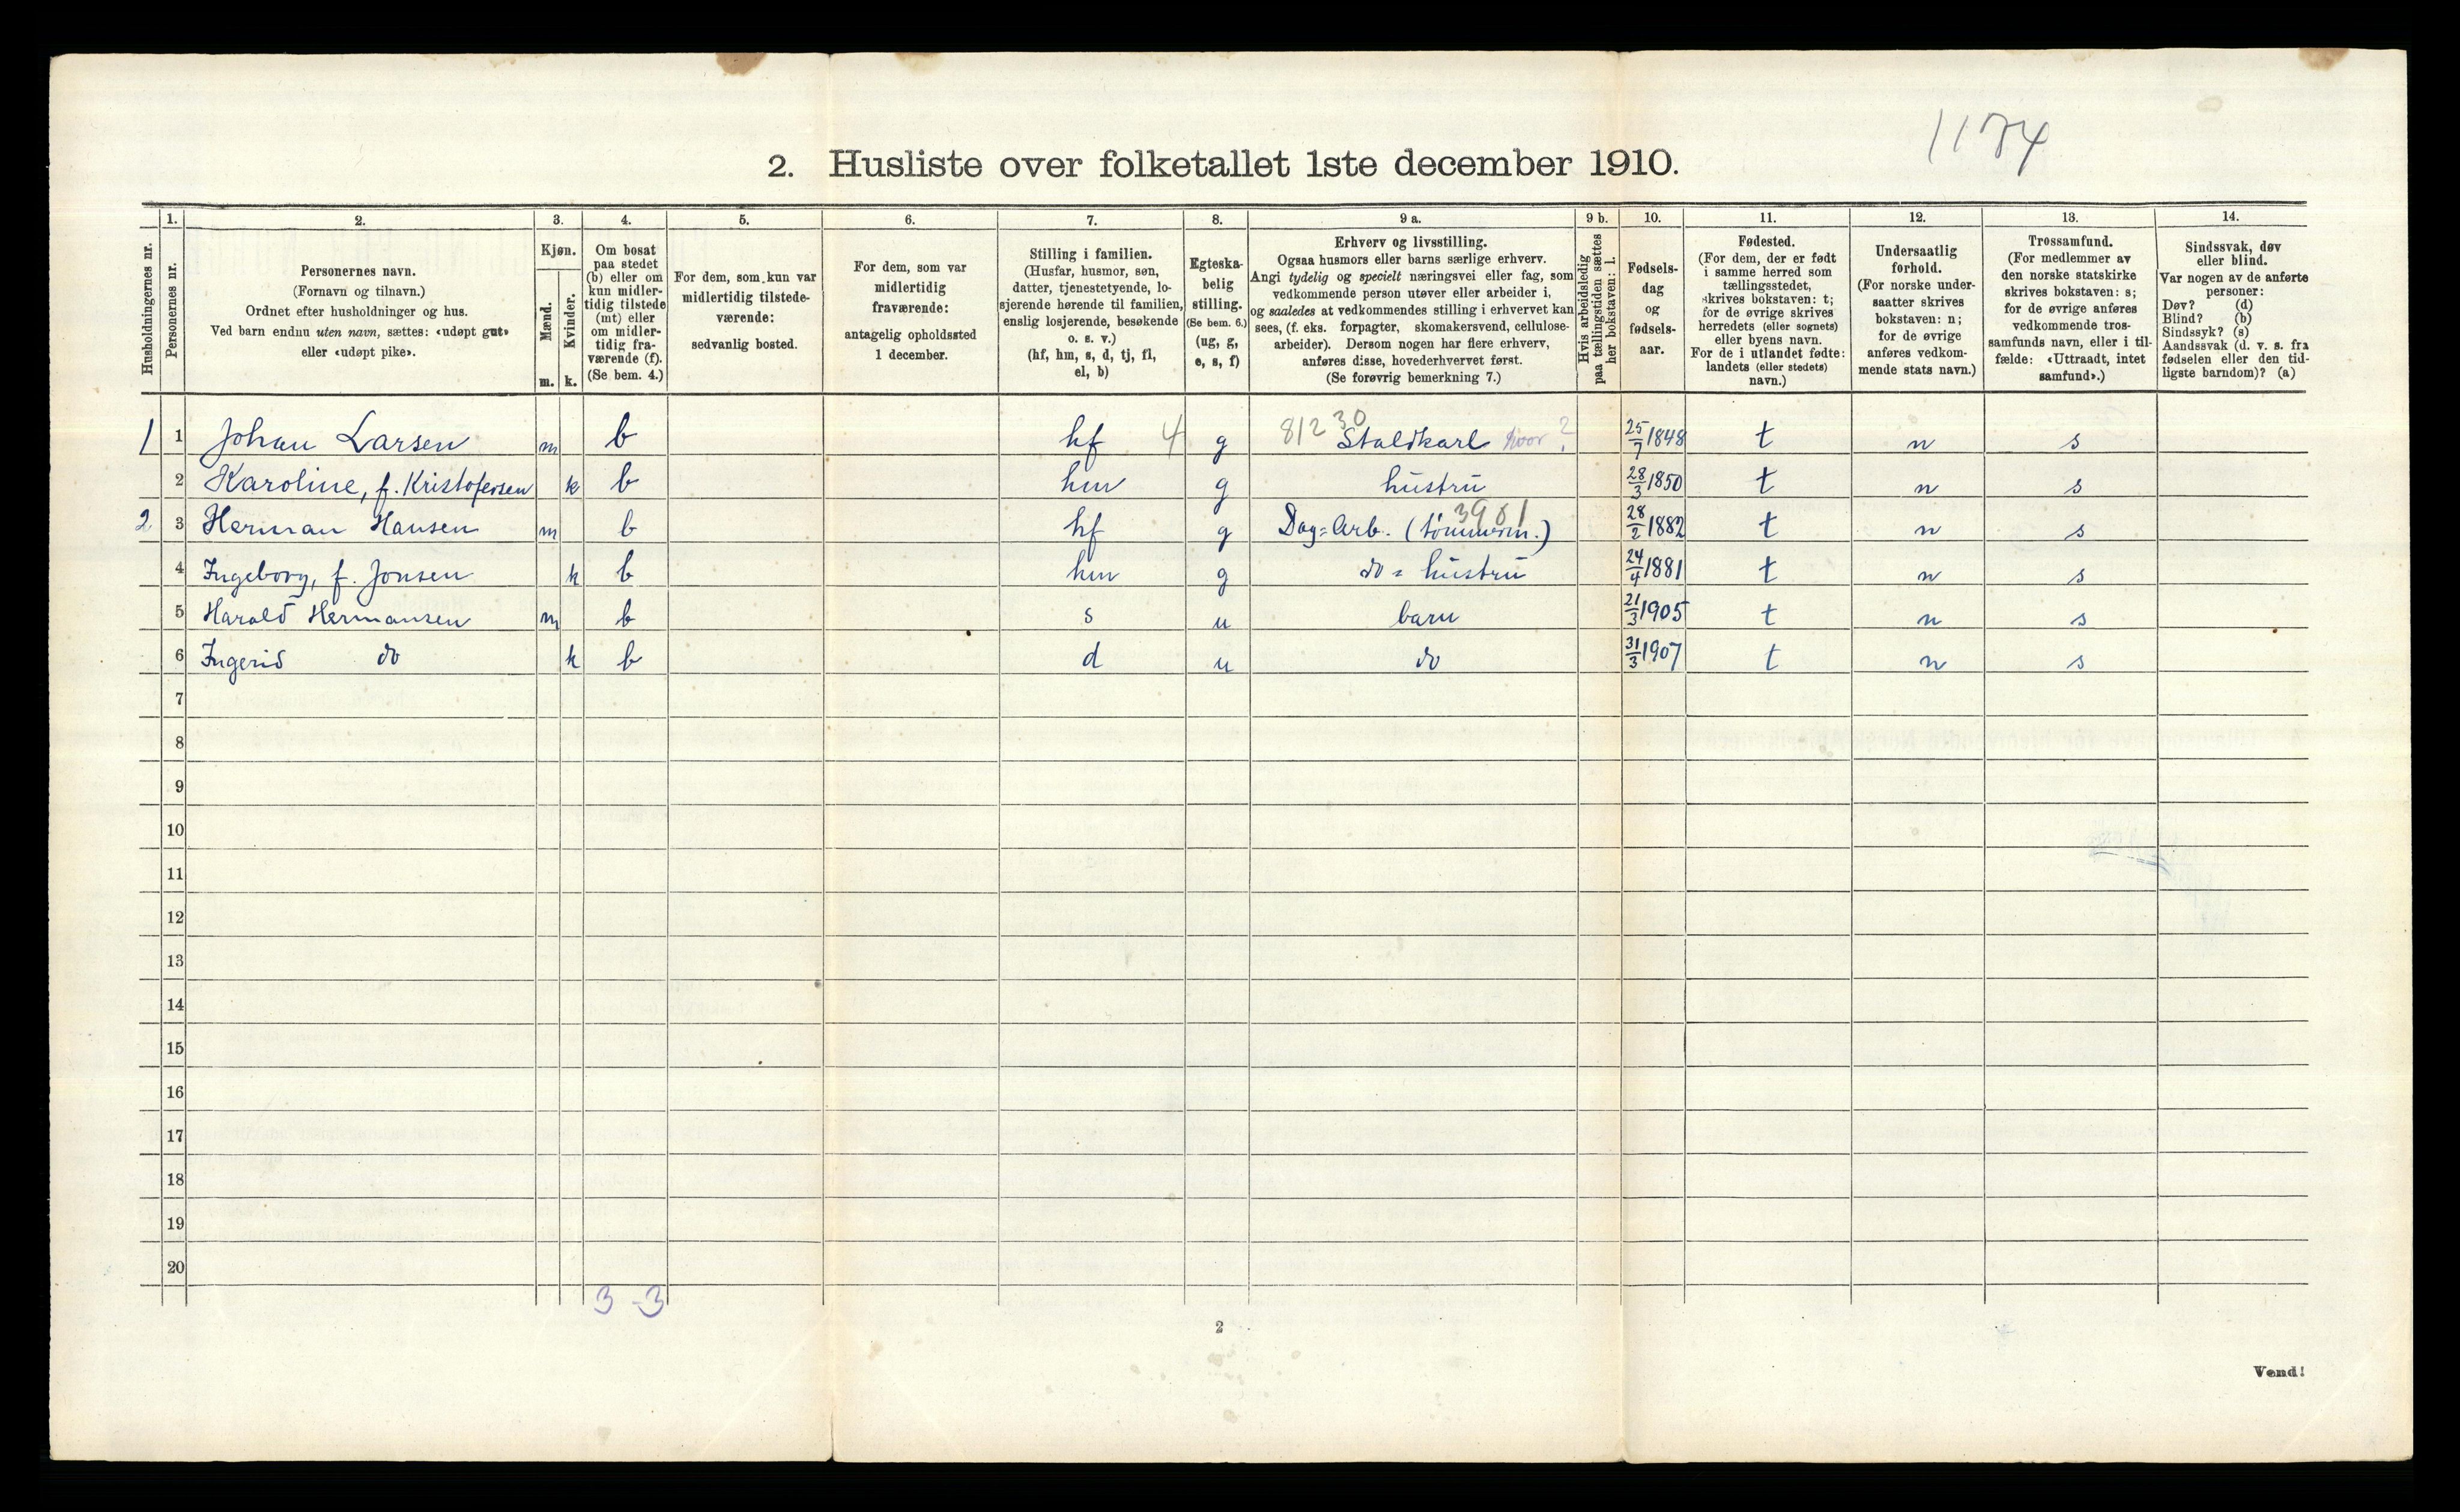 1174
2. Husliste over folketallet 1ste december 1910.
1. 2. 3. 4. 5. 6. 7. 8. 9 a. 9 b. 10. 11. 12. 13. 14.
Husholdningernes nr.
Personernes nr.
Personernes navn.
(Fornavn og tilnavn.)
Ordnet efter husholdninger og hus.
Ved barn endnu uten navn, sættes: «udøpt gut»
eller «udøpt pike».
Kjøn.
Mænd.
Kvinder.
m. k.
Om bosat
paa stedet
(b) eller om
kun midler-
tidig tilstede
(mt) eller
om midler-
tidig fra-
værende (f).
(Se bem. 4.)
For dem, som kun var
midlertidig tilstede-
værende:
sedvanlig bosted.
For dem, som var
midlertidig
fraværende:
antagelig opholdssted
1 december.
Stilling i familien.
(Husfar, husmor, søn,
datter, tjenestetyende, lo-
sjerende hørende til familien,
enslig losjerende, besøkende
o. s. v.)
(hf, hm, s, d, tj, fl,
el, b)
Egteska-
belig
stilling.
(Se bem. 6.)
(ug, g,
e, s, f)
Erhverv og livsstilling.
Ogsaa husmors eller barns særlige erhverv.
Angi tydelig og specielt næringsvei eller fag, som
vedkommende person utøver eller arbeider i,
og saaledes at vedkommendes stilling i erhvervet kan
sees, (f. eks. forpagter, skomakersvend, cellulose-
arbeider). Dersom nogen har flere erhverv,
anføres disse, hovederhvervet først.
(Se forøvrig bemerkning 7.)
Hvis arbeidsledig
paa tællingstiden sættes
her bokstaven: l.
Fødsels-
dag
og
fødsels-
aar.
Fødested.
(For dem, der er født
i samme herred som
tællingsstedet,
skrives bokstaven: t;
for de øvrige skrives
herredets (eller sognets)
eller byens navn.
For de i utlandet fødte:
landets (eller stedets)
navn.)
Undersaatlig
forhold.
(For norske under-
saatter skrives
bokstaven: n;
for de øvrige
anføres vedkom-
mende stats navn.)
Trossamfund.
(For medlemmer av
den norske statskirke
skrives bokstaven: s;
for de øvrige anføres
vedkommende tros-
samfunds navn, eller i til-
fælde: «Uttraadt, intet
samfund».)
Sindssvak, døv
eller blind.
Var nogen av de anførte
personer:
Døv? (d)
Blind? (b)
Sindssyk? (s)
Aandssvak (d. v. s. fra
fødselen eller den tid-
ligste barndom)? (a)
1 1 Johan Larsen m b hf 4 g 81230 Staldkarl hvor? 25/7 1848 t n s
2 Karoline, f. Kristofersen k b hm g hustru 28/3 1850 t n s
2 3 Herman Hansen m b hf g Dag=Arb. (tømmerm.) 3961 28/2 1882 t n s
4 Ingeborg, f. Jonsen k b hm g do = hustru 24/4 1881 t n s
5 Harald Hermansen m b s u barn 21/3 1905 t n s
6 Ingerid do k b d u do 31/3 1907 t n s
7
8
9
10
11
12
13
14
15
16
17
18
19
20
3-3
2
Vend!